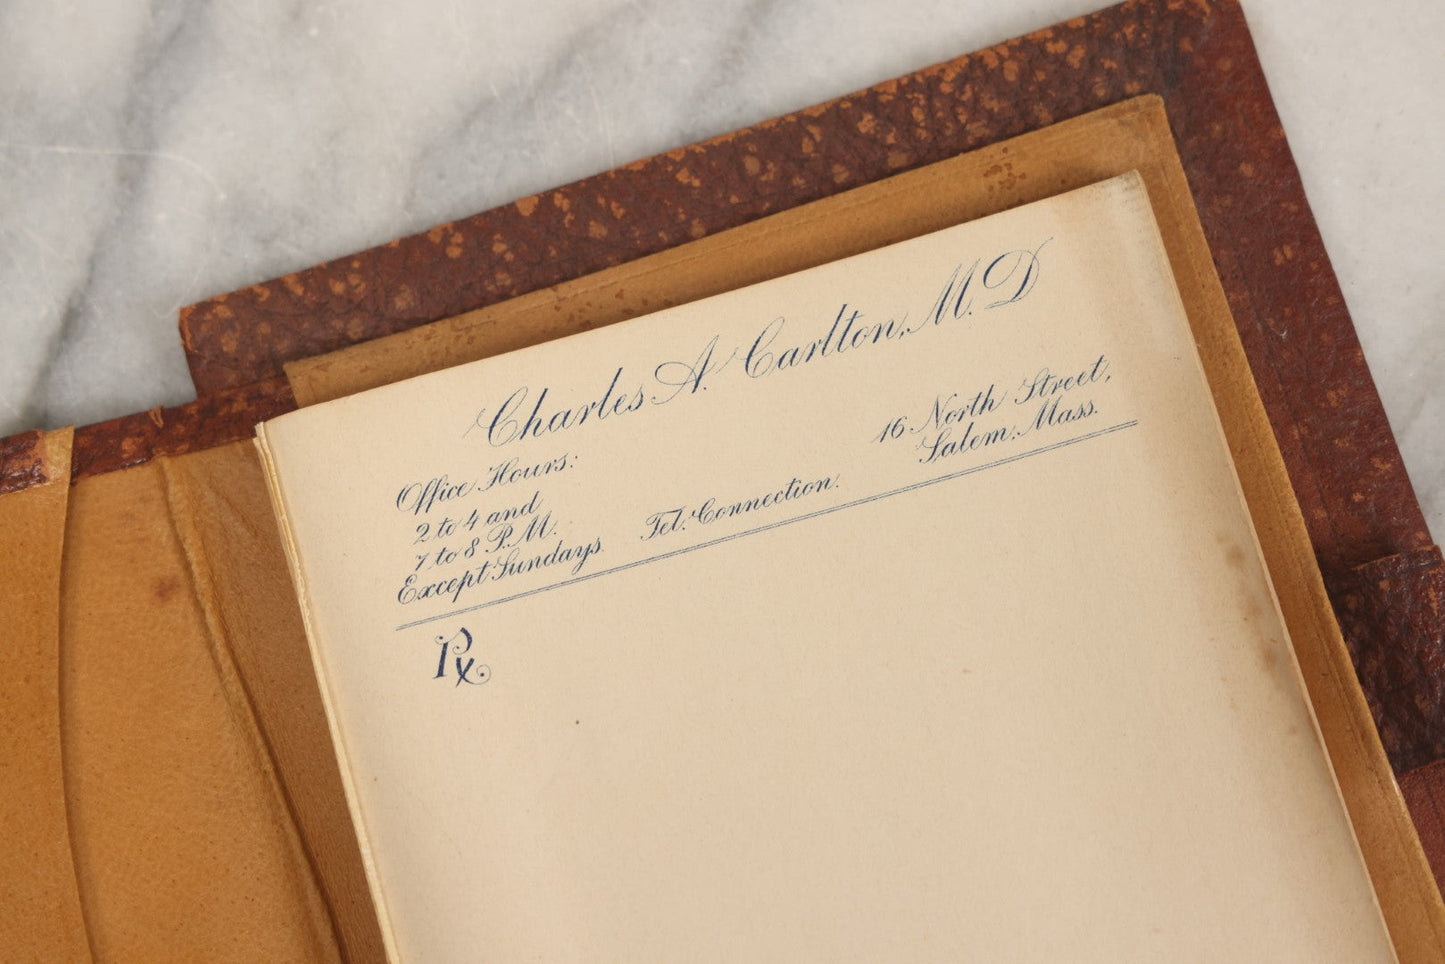 Charles A. Carlton, M.D
Office Hours:
2 to 4 and
7 to 8 P.M.
Except Sundays.
Tel. Connection.
16 North Street,
Salem. Mass.
Rx